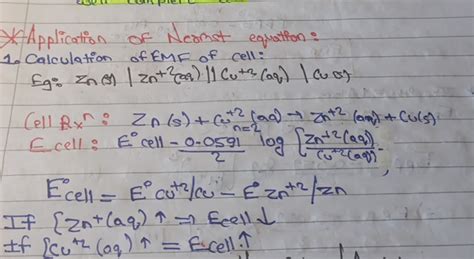 *Application of Nernst equation:
1. Calculation of EMF of cell:
Eg: Zn(s) | Zn+2(aq) || Cu+2(aq) | Cu(s)
Cell Rxn: Zn(s) + Cu+2(aq) → Zn+2(aq) + Cu(s)
n=2
Ecell: E°cell - 0.0591/2 log [Zn+2(aq)/Cu+2(aq)
E°cell = E°cu+2/cu - E°zn+2/zn
If [Zn+(aq) ↑ ⇒ Ecell ↓
If [Cu+2(aq) ↑ = Ecell ↑